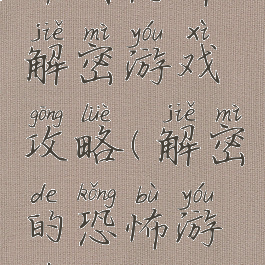 jiě mì yóu xì
解密游戏
gōng lüè jiě mì
攻略(解密
de kǒng bù yóu
的恐怖游